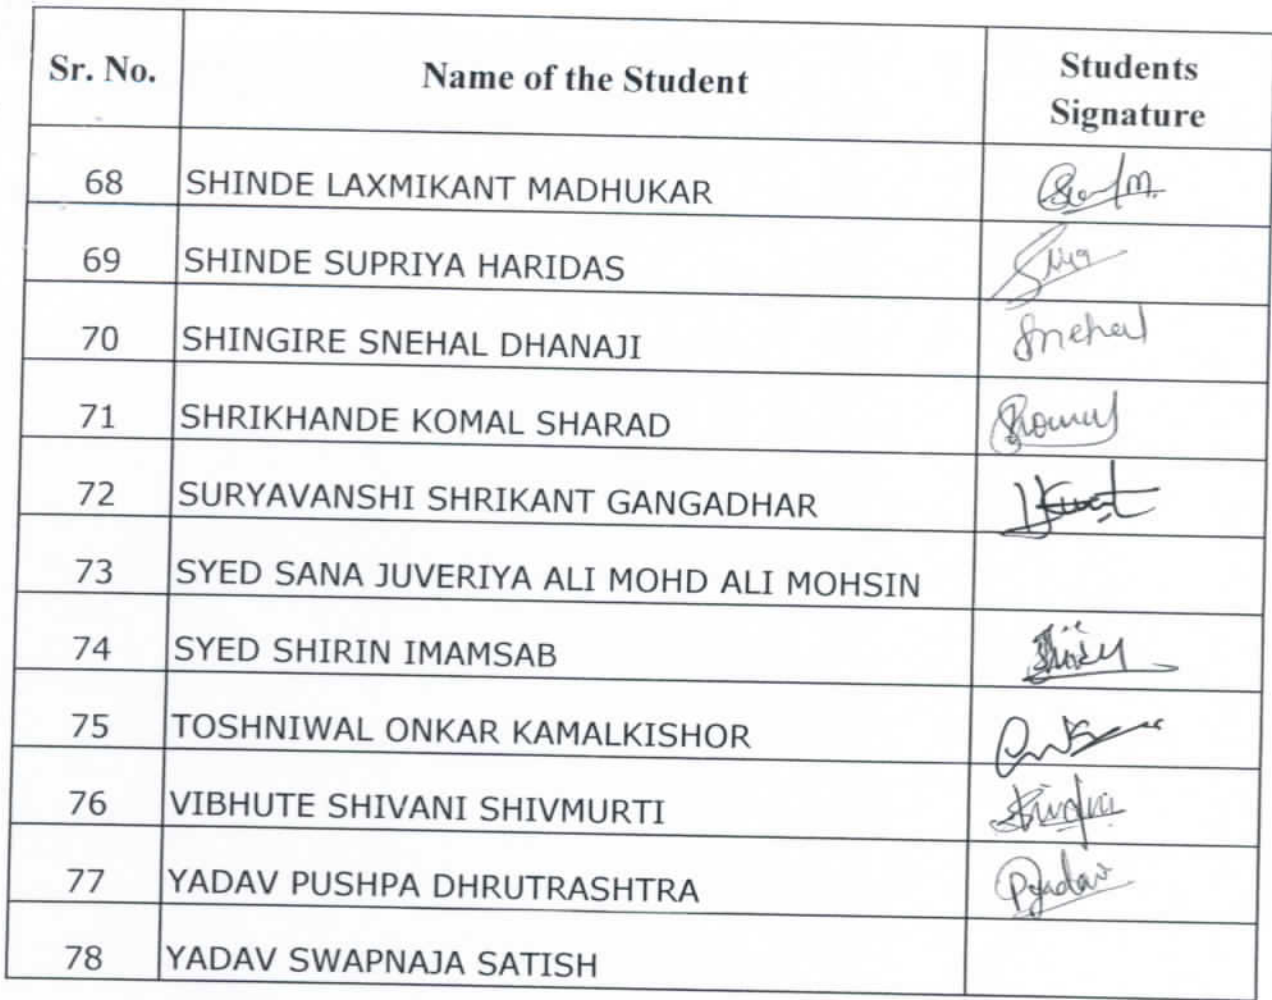 Sr. No. Name of the Student Students
Signature
68 SHINDE LAXMIKANT MADHUKAR
69 SHINDE SUPRIYA HARIDAS
70 SHINGIRE SNEHAL DHANAJI Snehal
71 SHRIKHANDE KOMAL SHARAD
72 SURYAVANSHI SHRIKANT GANGADHAR
73 SYED SANA JUVERIYA ALI MOHD ALI MOHSIN
74 SYED SHIRIN IMAMSAB
75 TOSHNIWAL ONKAR KAMALKISHOR
76 VIBHUTE SHIVANI SHIVMURTI
77 YADAV PUSHPA DHRUTRASHTRA PYadav
78 YADAV SWAPNAJA SATISH